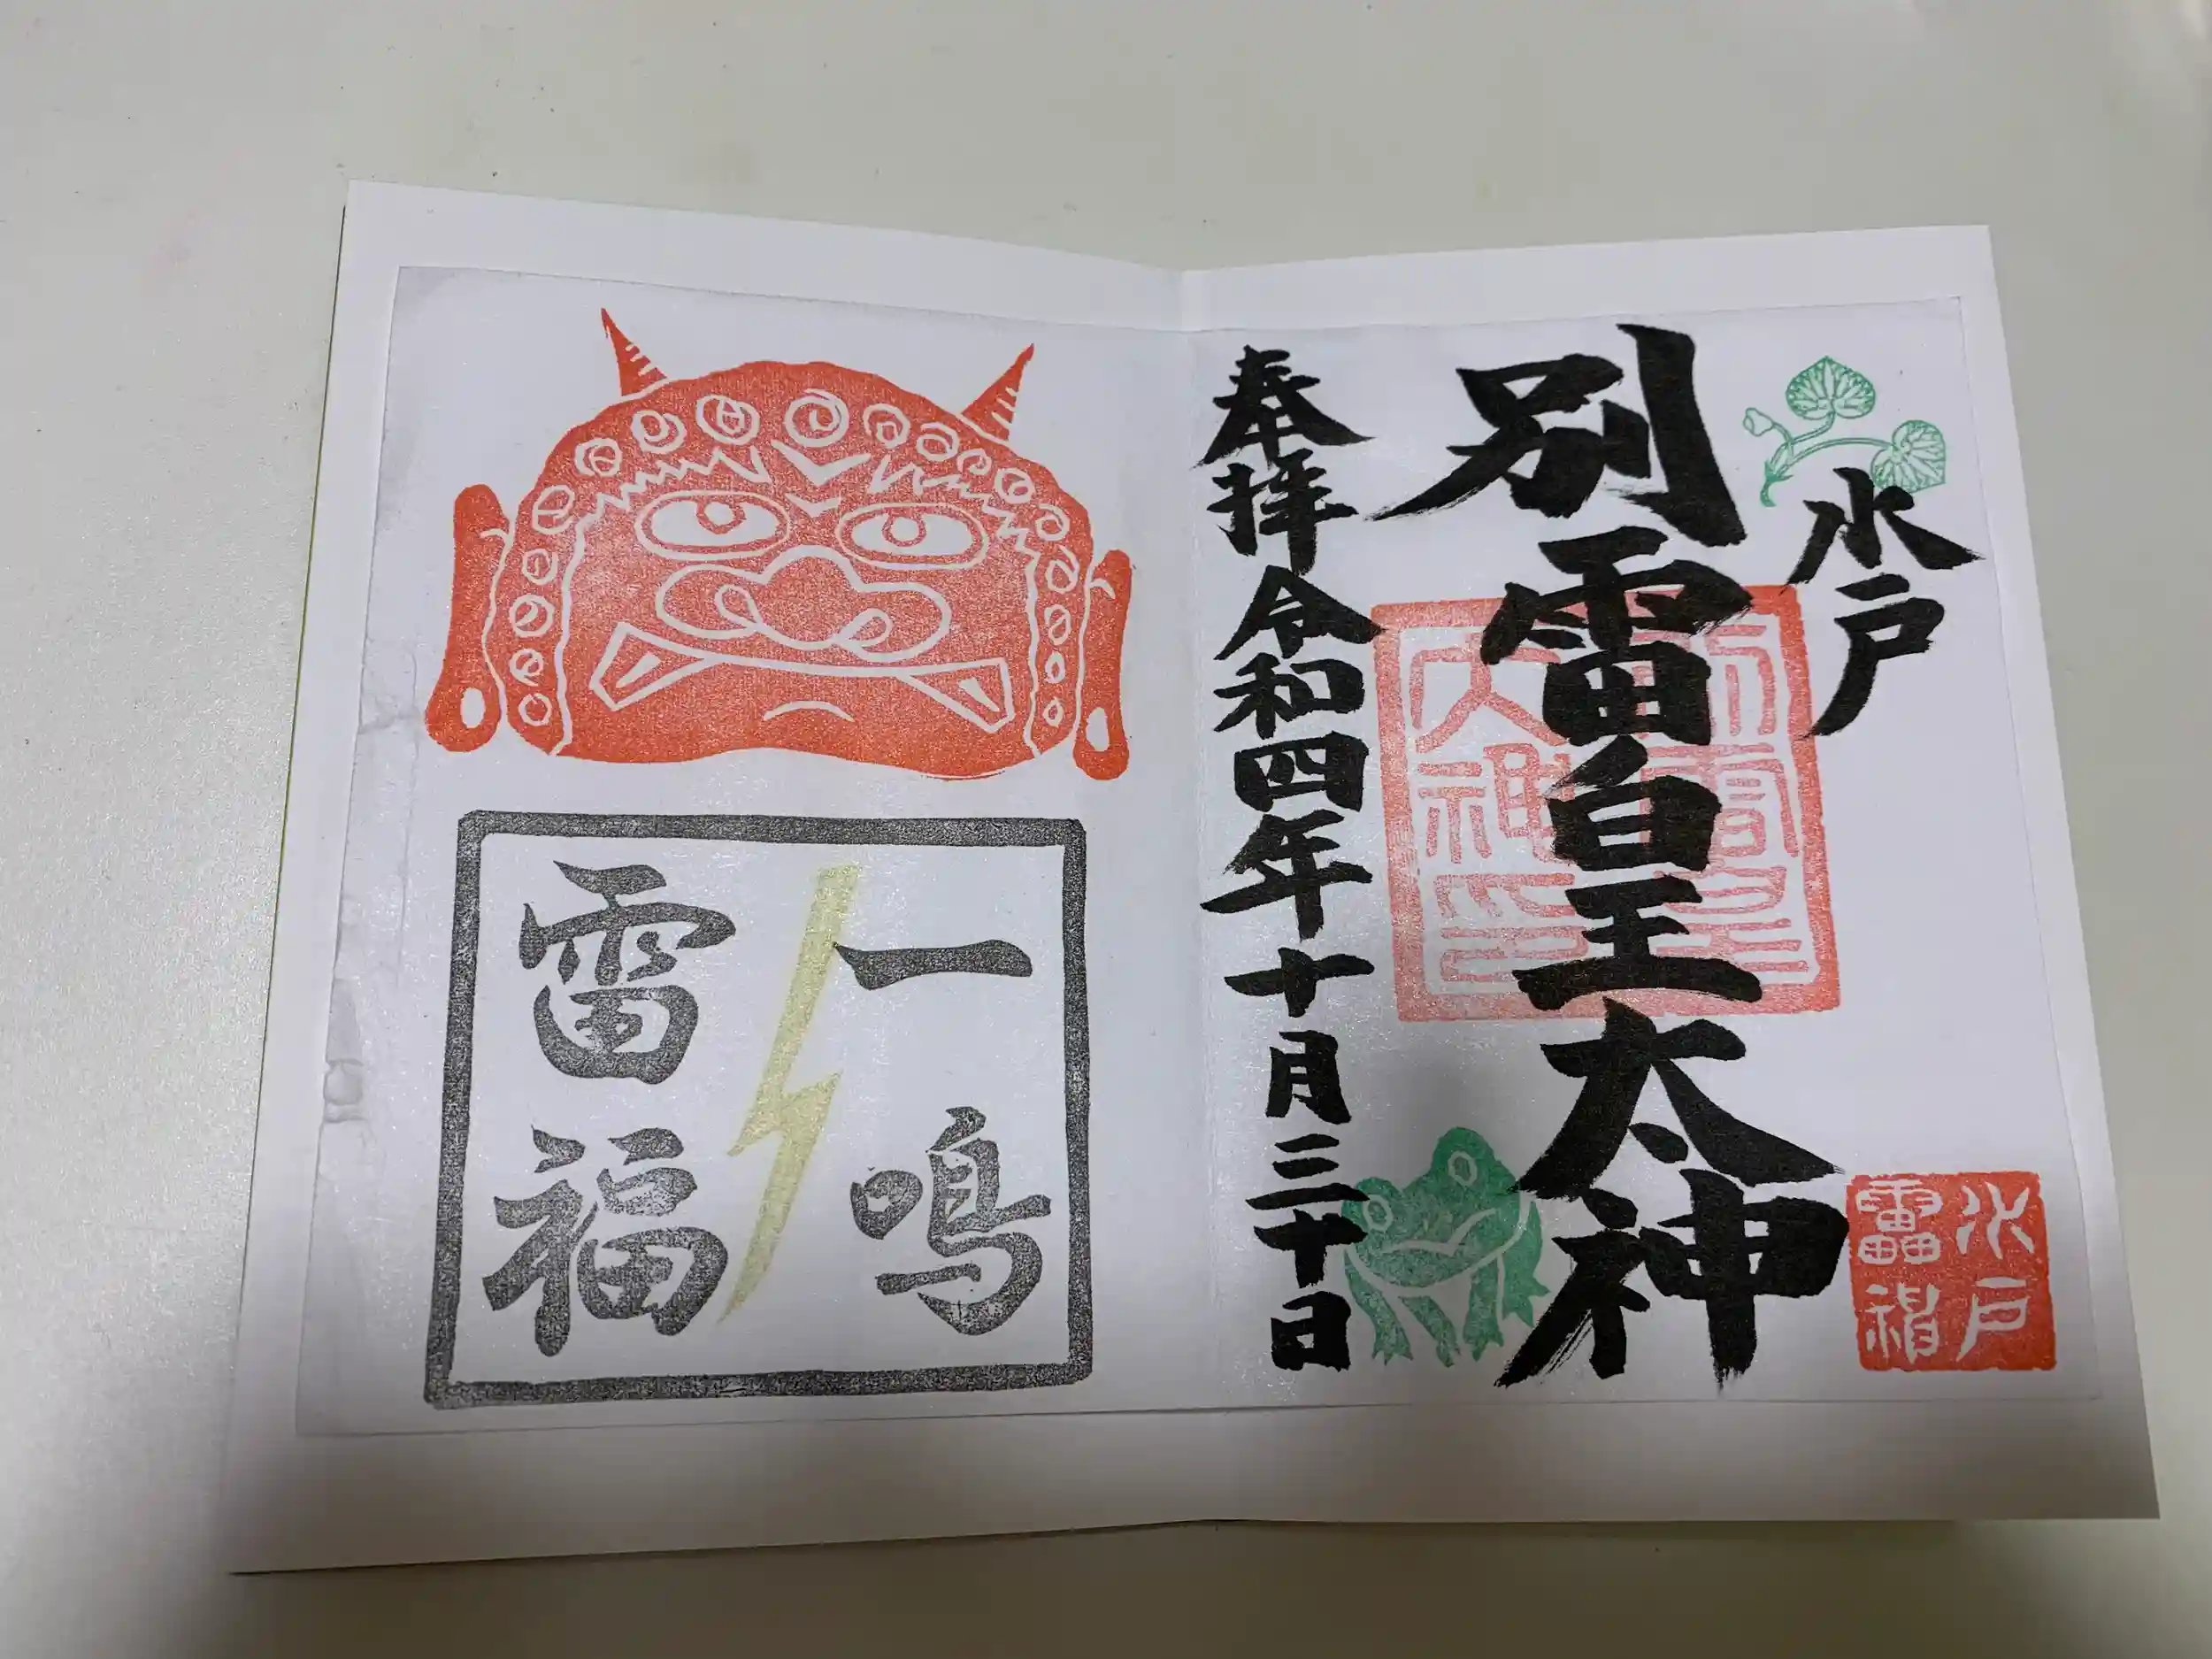 水戸
別雷皇太神
奉拝 令和四年十月三十日
水戸
雷神
一鳴
雷福